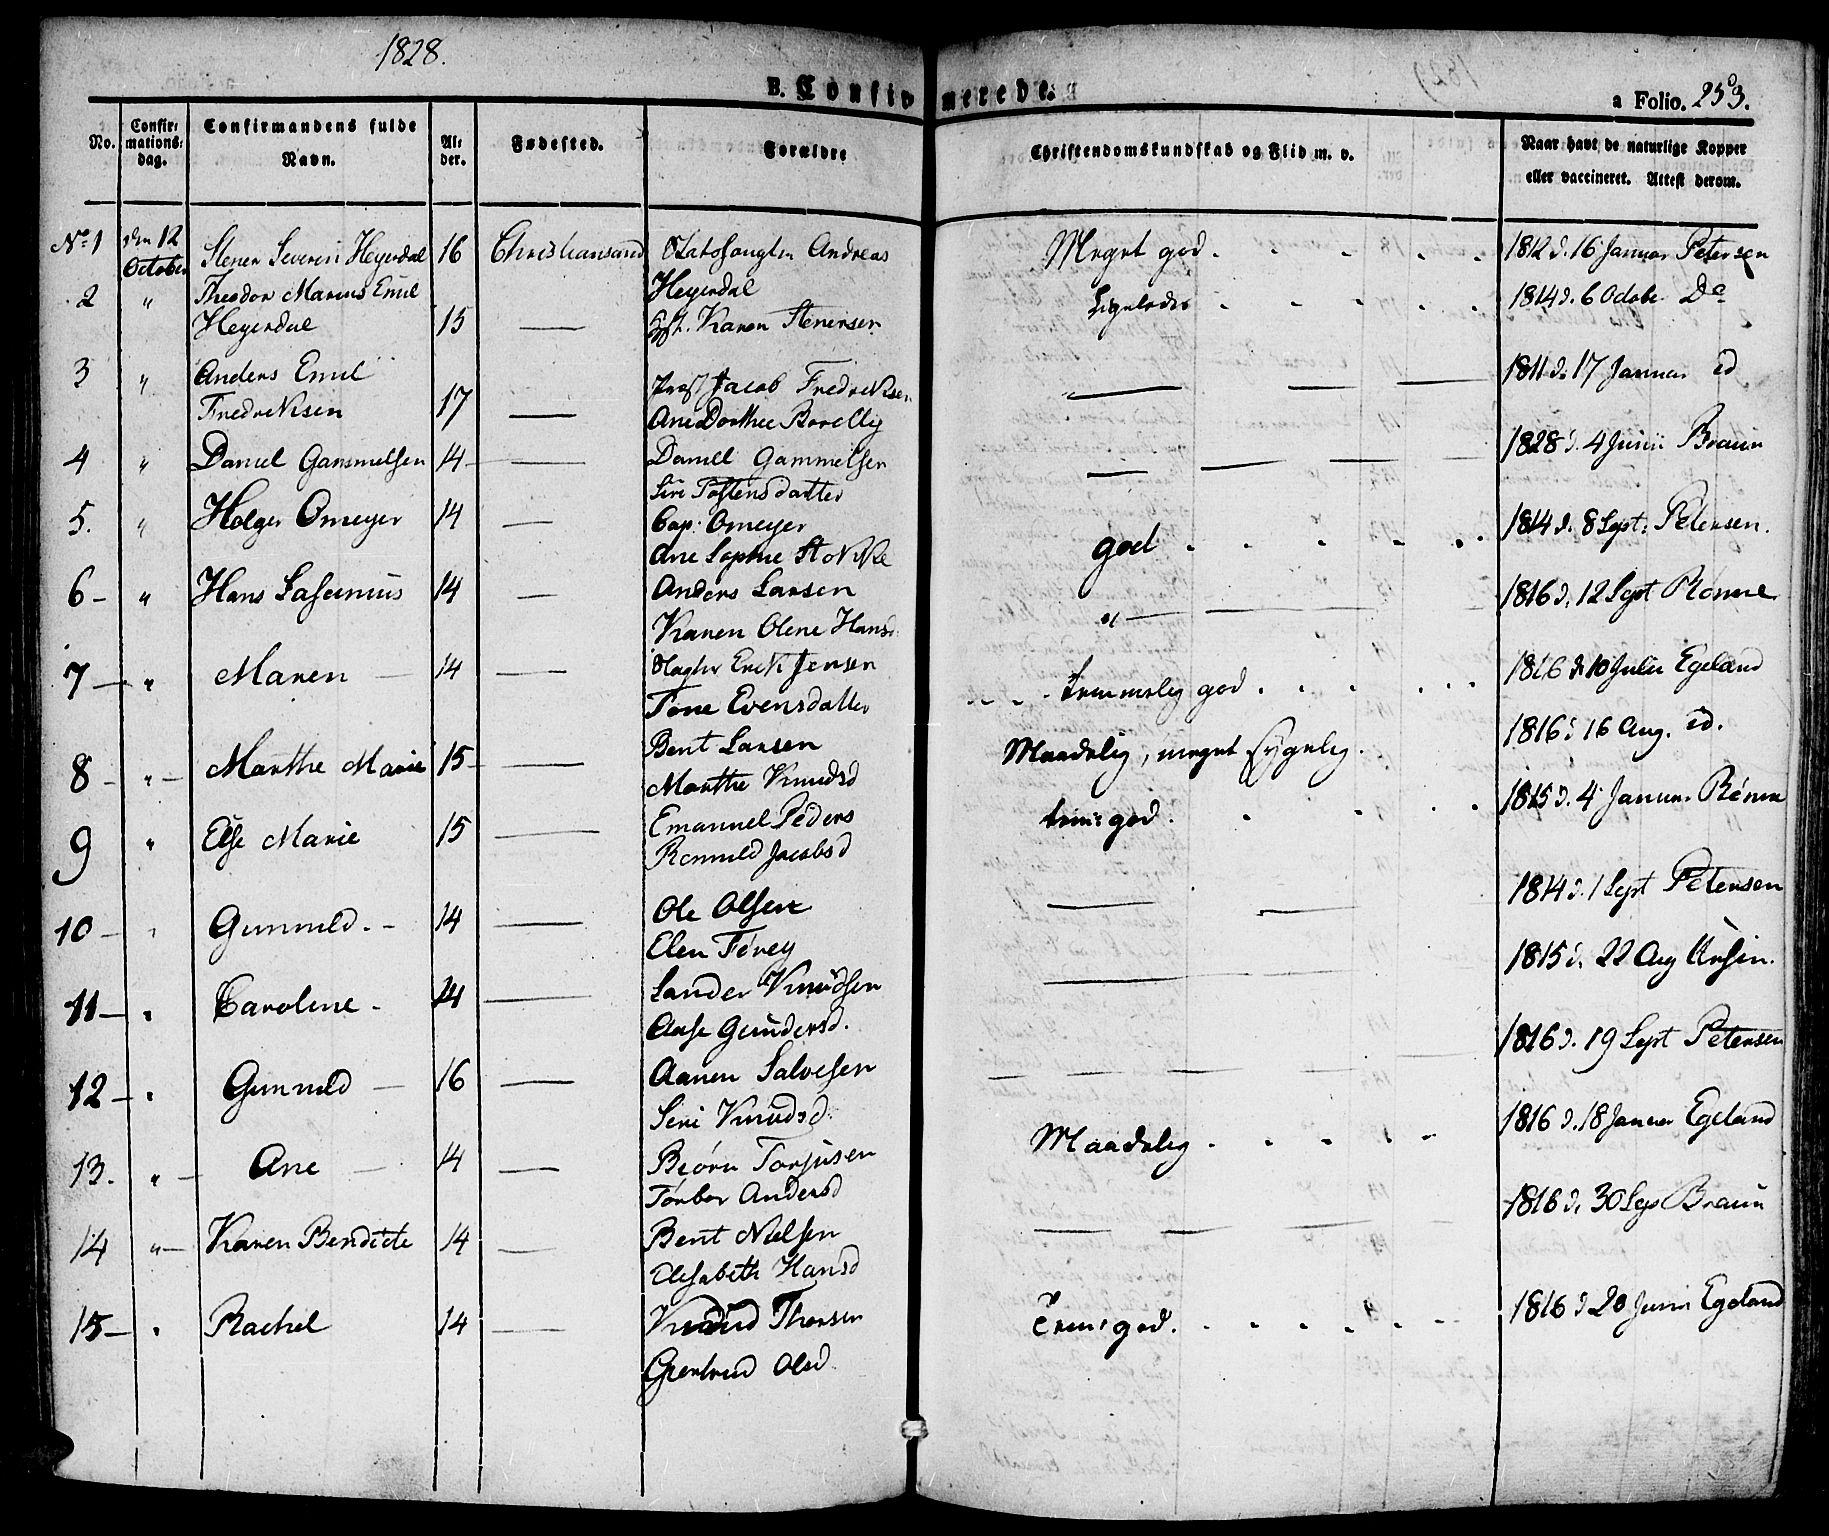 1828.
B. Confirmerede.
a Folio. 253.
No.
Confir: mations: dag.
Confirmandens fulde Navn.
Al: der.
Fødested.
Forældre
Christendomskundskab og Flid m. v.
Naar havt de naturlige Kopper eller vaccineret. Attest derom.
No 1 den 12 October Stener Severin Heyerdal 16 Christiansand Andreas Heyerdal Meget god. 1812 d. 16 Januar Petersen
2 " Theodor Marius Emil Heyerdal 15 — Karen Stenersen Ligeledes 1814 d. 6 Octobr Do
3 " Anders Emil Fredriksen 17 — Jacob Fredriksen Ane Dorthee Borelly — 1811 d. 17 Januar id
4 " Daniel Gammelsen 14 — Daniel Gammelsen Siri Tostensdatter — 1828 d. 4 Junii Braun
5. " Holger Omeyer 14 — Cap: Omeyer Ane Sophie Stokke god 1814 d. 8 Sept: Petersen.
6 " Hans Lasenius 14 — Anders Larsen Karen Olene Hansd: " — 1816 d. 12 Sept Rønne
7 " Maren 14 — Erik Jensen Tone Evensdatter temmelig god. 1816 d 10 Julii Egeland
8 " Marthe Marie 15 — Bent Larsen Marthe Knudsd Maadelig, meget sygelig. 1816 d 16 Aug. id.
9 " Else Marie 15 — Emanuel Peders Jacobsd tem: god. 1815 d. 4 Januar Rønne
10 " Gunnild. 14 — Ole Olsen Elen Fórey — 1814 d. 1 Sept Petersen
11 " Caroline 14 — Sander Knudsen Aase Gundersd. — 1815 d. 22 Aug
12 " Gunnild 16 — Aanen Salvesen Siri Knudsd. — 1816 d. 19 Sept Petersen
13. " Ane 14 — Biørn Torjusen Torbor Andersd Maadelig 1816 d. 18 Januar Egeland
14 " Karen Bendicte 14 — Bent Nielsen Elisabeth Hansd — 1816 d. 30 Sep Braun
15 " Rachel 14 — Knud Thorsen Giertrud Olsd. Tem: god. 1816 d 20 Junii Egeland